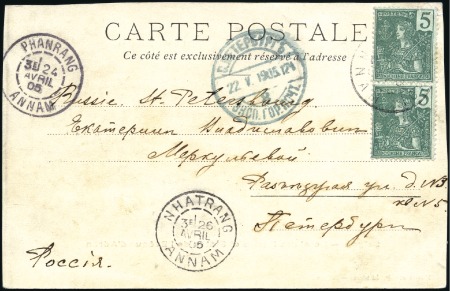 CARTE POSTALE
Ce côté est exclusivement réservé à l'adresse
PHANRANG
3E 24
AVRIL
05
ANNAM
22. V. 1905. 12
5
5
Russie St. Petersbourg
Екатерины Владиславовны
Меркуловой
Разъезжая ул. д. №3
кв №5.
Петербург
Россія.
NHATRANG
3E 26
AVRIL
05
ANNAM